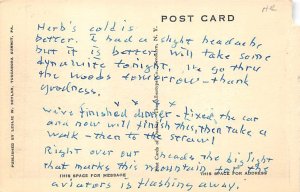 POST CARD
Herb's cold is
better. I had a slight headache
but it is better. Will take some
dynamite tonight. We go thru
the woods tomorrow - thank
goodness.
x x x
We've finished dinner - fixed the car
and now will finish this, then take a
walk - then to the straw!
Right over our heads the big light
that marks this mountain for the
aviators is flashing away.
THIS SPACE FOR MESSAGE
THIS SPACE FOR ADDRESS
PUBLISHED BY LESLIE H. 
TUSCARORA SUMMIT, PA.